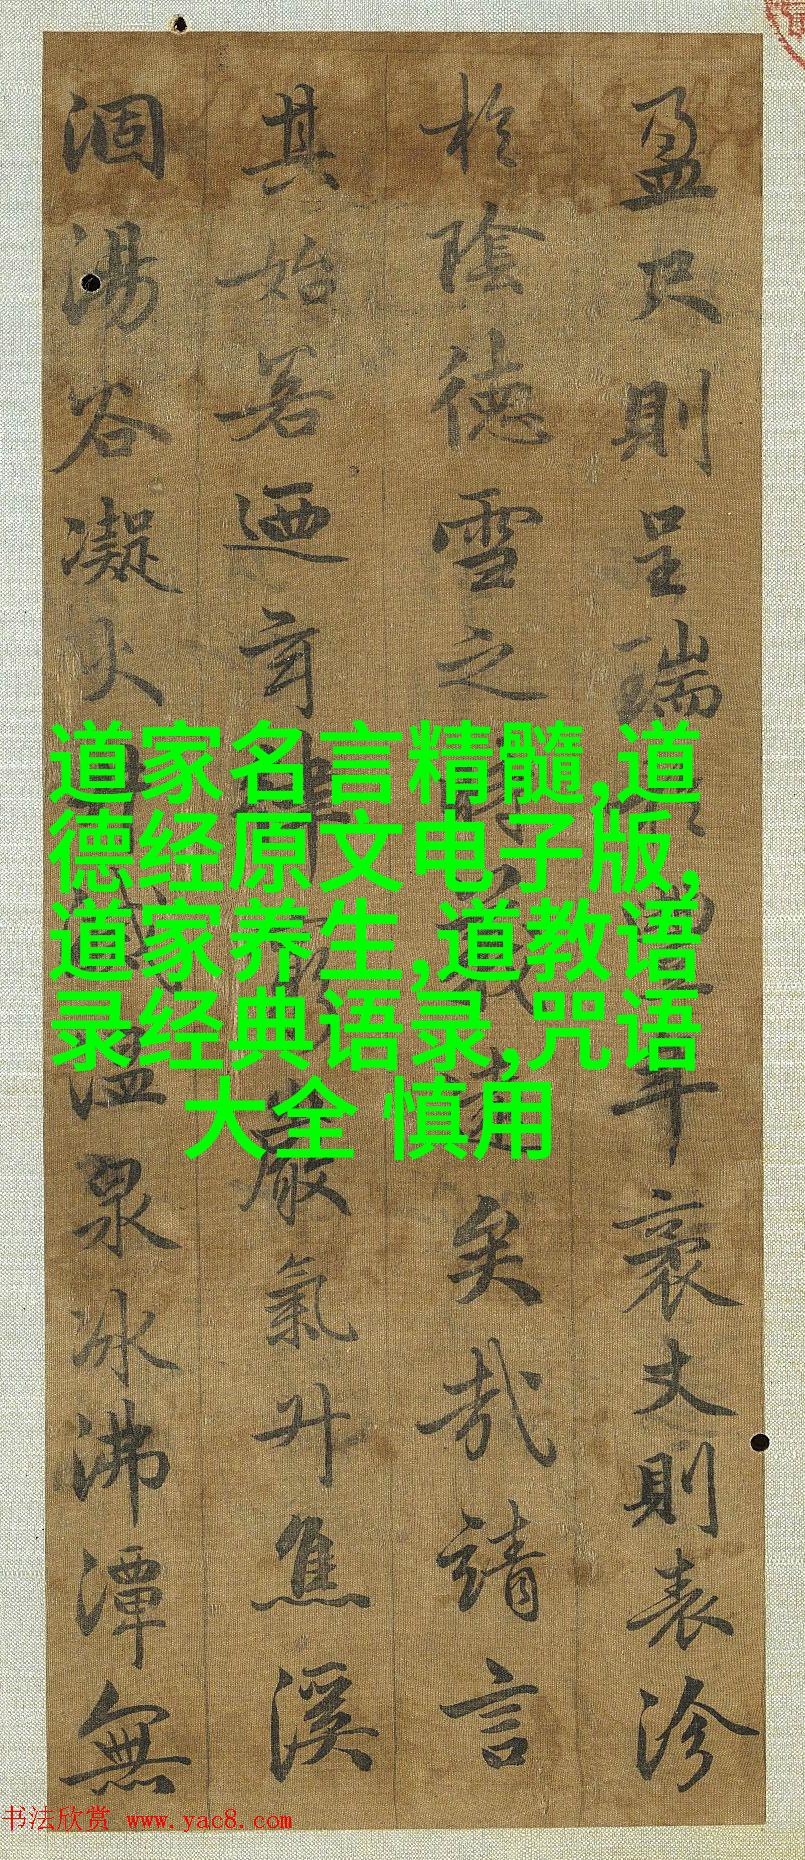 盈尺則呈瑞年袤丈則表沴
於陰德雪之矣哉請言
其始若迺玄嚴氣升焦溪
涸湯谷凝火溫泉冰沸潭無
道家名言精髓,道
德经原文电子版,
道家养生,道教语
录经典语录,咒语
大全 慎用
书法欣赏 www.yac8.com